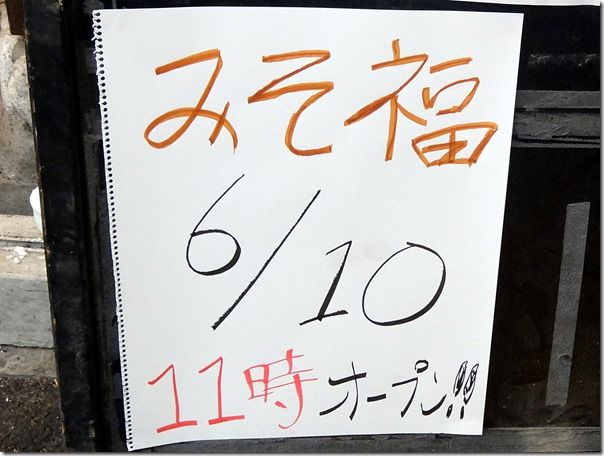 みそ福
6/10
11時オープン!!